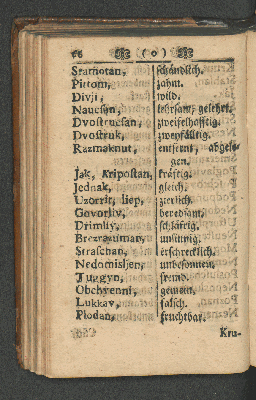 66 ( o )
Sramotan, schändlich.
Pittom, zahm.
Divji, wild.
Naucsen, lehrsam, gelehrt.
Dvostrucsan, zweifelhafftig.
Dvostruk, zweyfältig.
Razmaknut, entfernt, abgele-
gen.
Jak, kripostan, kräftig.
Jednak, gleich.
Uzorrit, liep, zierlich.
Govorliv, beredsam.
Drimliv, schläferig.
Brezrazuman, unsinnig.
Straschan, erschrecklich.
Nedomisljen, unbesonnen.
Juggyn, fremd.
Obchyenni, gemein.
Lukkav, falsch.
Plodan, fruchtbar.
Kru-